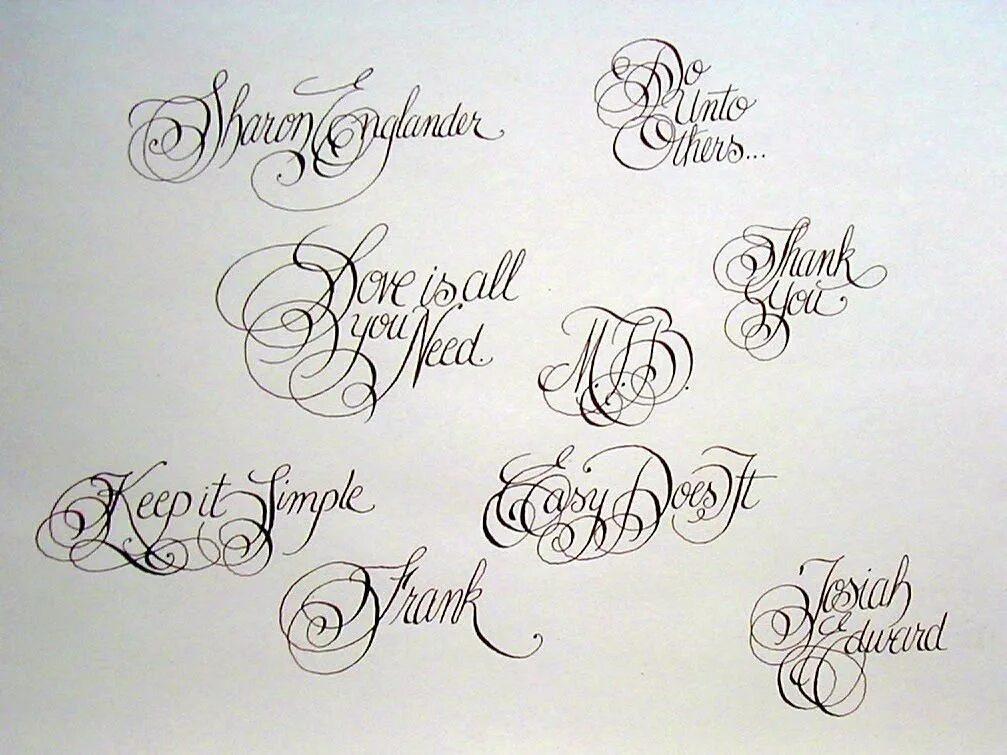 Sharon Englander
Do
Unto
Others...
Love is all
you Need.
Thank
you
M.J.B.
Keep it Simple
Easy Does It
Frank
Josiah
Edward